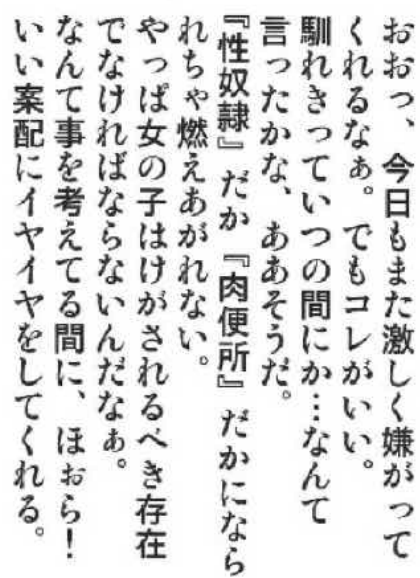 おおっ、今日もまた激しく嫌がって
くれるなぁ。でもコレがいい。
馴れきっていつの間にか…なんて
言ったかな、ああそうだ。
『性奴隷』だか『肉便所』だかになら
れちゃ燃えあがれない。
やっぱ女の子はけがされるべき存在
でなければならないんだなぁ。
なんて事を考えてる間に、ほぉら！
いい案配にイヤイヤをしてくれる。